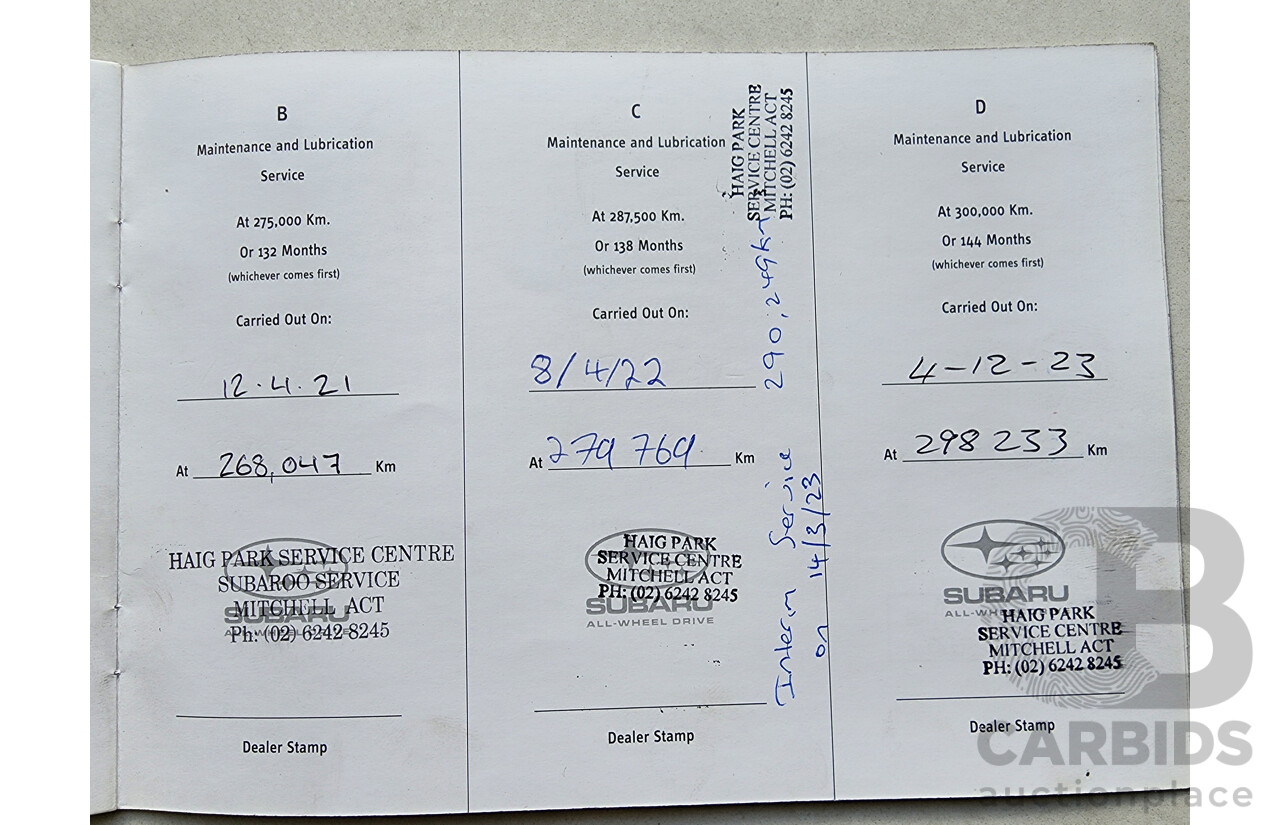 B
Maintenance and Lubrication
Service
At 275,000 Km.
Or 132 Months
(whichever comes first)
Carried Out On:
12.4.21
At 268,047 Km
HAIG PARK SERVICE CENTRE
SUBAROO SERVICE
MITCHELL ACT
Ph: (02) 6242 8245
SUBARU
Dealer Stamp
C
Maintenance and Lubrication
Service
At 287,500 Km.
Or 138 Months
(whichever comes first)
Carried Out On:
8/4/22
At 279 769 Km
HAIG PARK
SERVICE CENTRE
MITCHELL ACT
PH: (02) 6242 8245
SUBARU
ALL-WHEEL DRIVE
Dealer Stamp
HAIG PARK
SERVICE CENTRE
MITCHELL ACT
PH: (02) 6242 8245
Interim Service 290,249km
on 14/3/23
D
Maintenance and Lubrication
Service
At 300,000 Km.
Or 144 Months
(whichever comes first)
Carried Out On:
4-12-23
At 298 233 Km
SUBARU
HAIG PARK
SERVICE CENTRE
MITCHELL ACT
PH: (02) 6242 8245
Dealer Stamp
B
CARBIDS
auctionplace